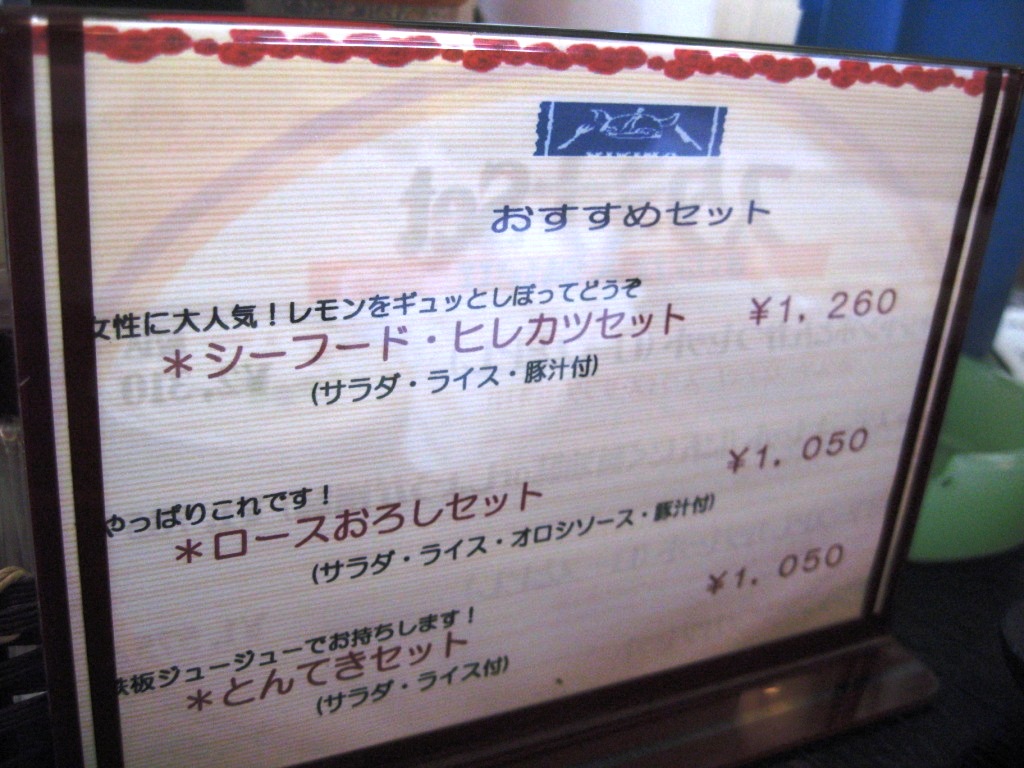 おすすめセット
女性に大人気！レモンをギュッとしぼってどうぞ
＊シーフード・ヒレカツセット ¥1,260
(サラダ・ライス・豚汁付)
やっぱりこれです！
＊ロースおろしセット ¥1,050
(サラダ・ライス・オロシソース・豚汁付)
鉄板ジュージューでお持ちします！
＊とんてきセット ¥1,050
(サラダ・ライス付)